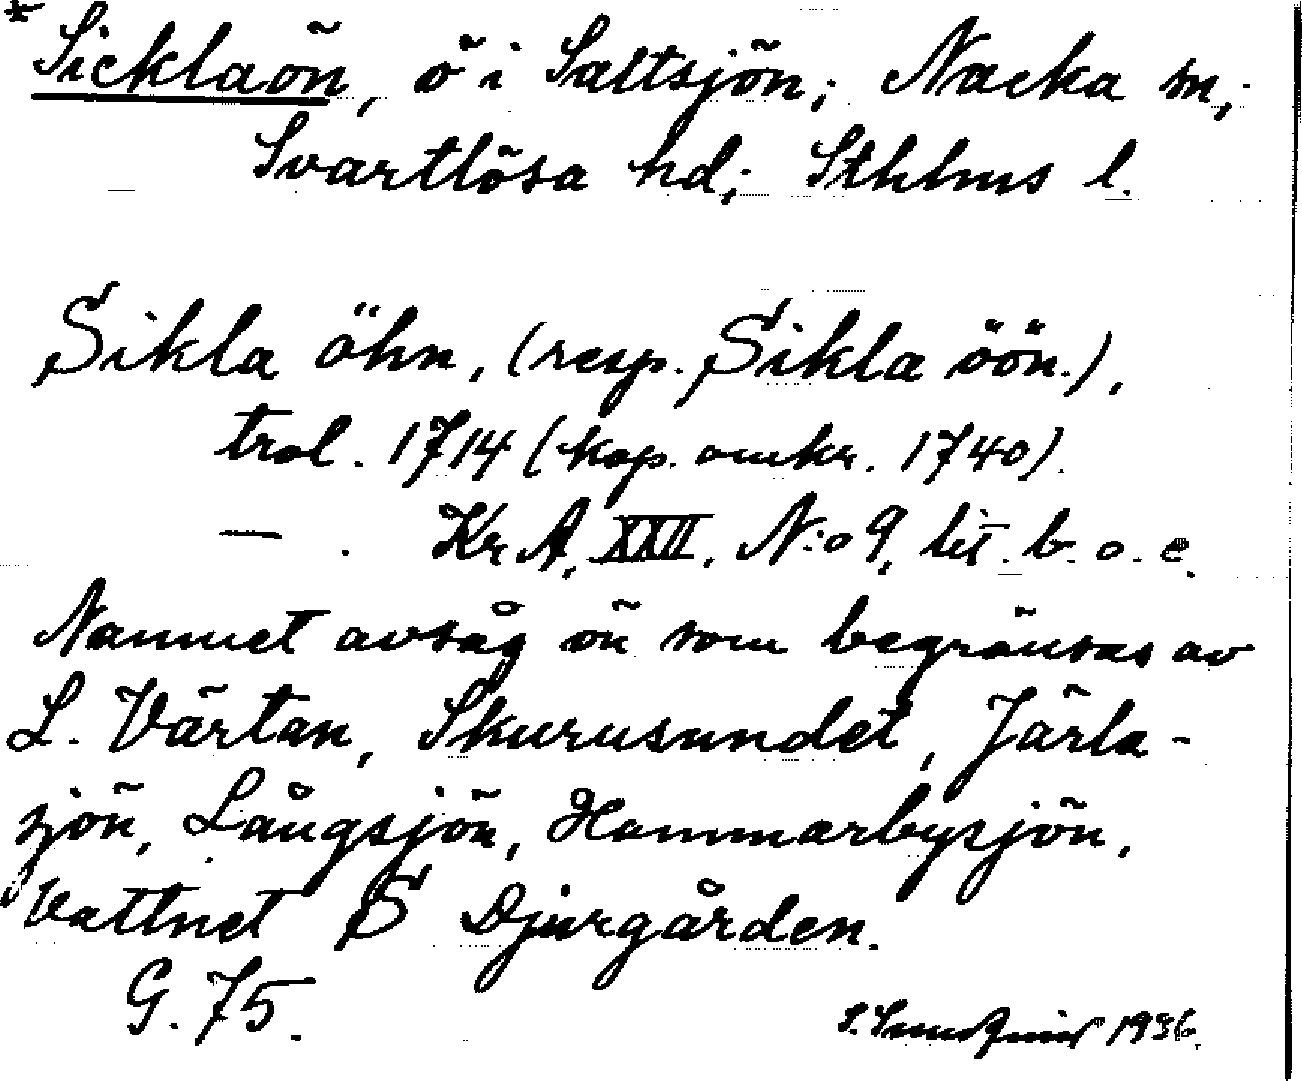 * Sicklaön, ö i Saltsjön; Nacka sn;
Svartlösa hd; Sthlms l.
Sikla öhn, (resp. Sikla öön.),
trol. 1714 (kop. omkr. 1740).
— . Kr A, XXII, N:o 9, lit. b. o. c.
Namnet avsåg ön som begränsas av
L. Värtan, Skurusundet, Järla-
sjön, Långsjön, Hammarbysjön,
Vattnet S Djurgården.
G. 75.
1936.